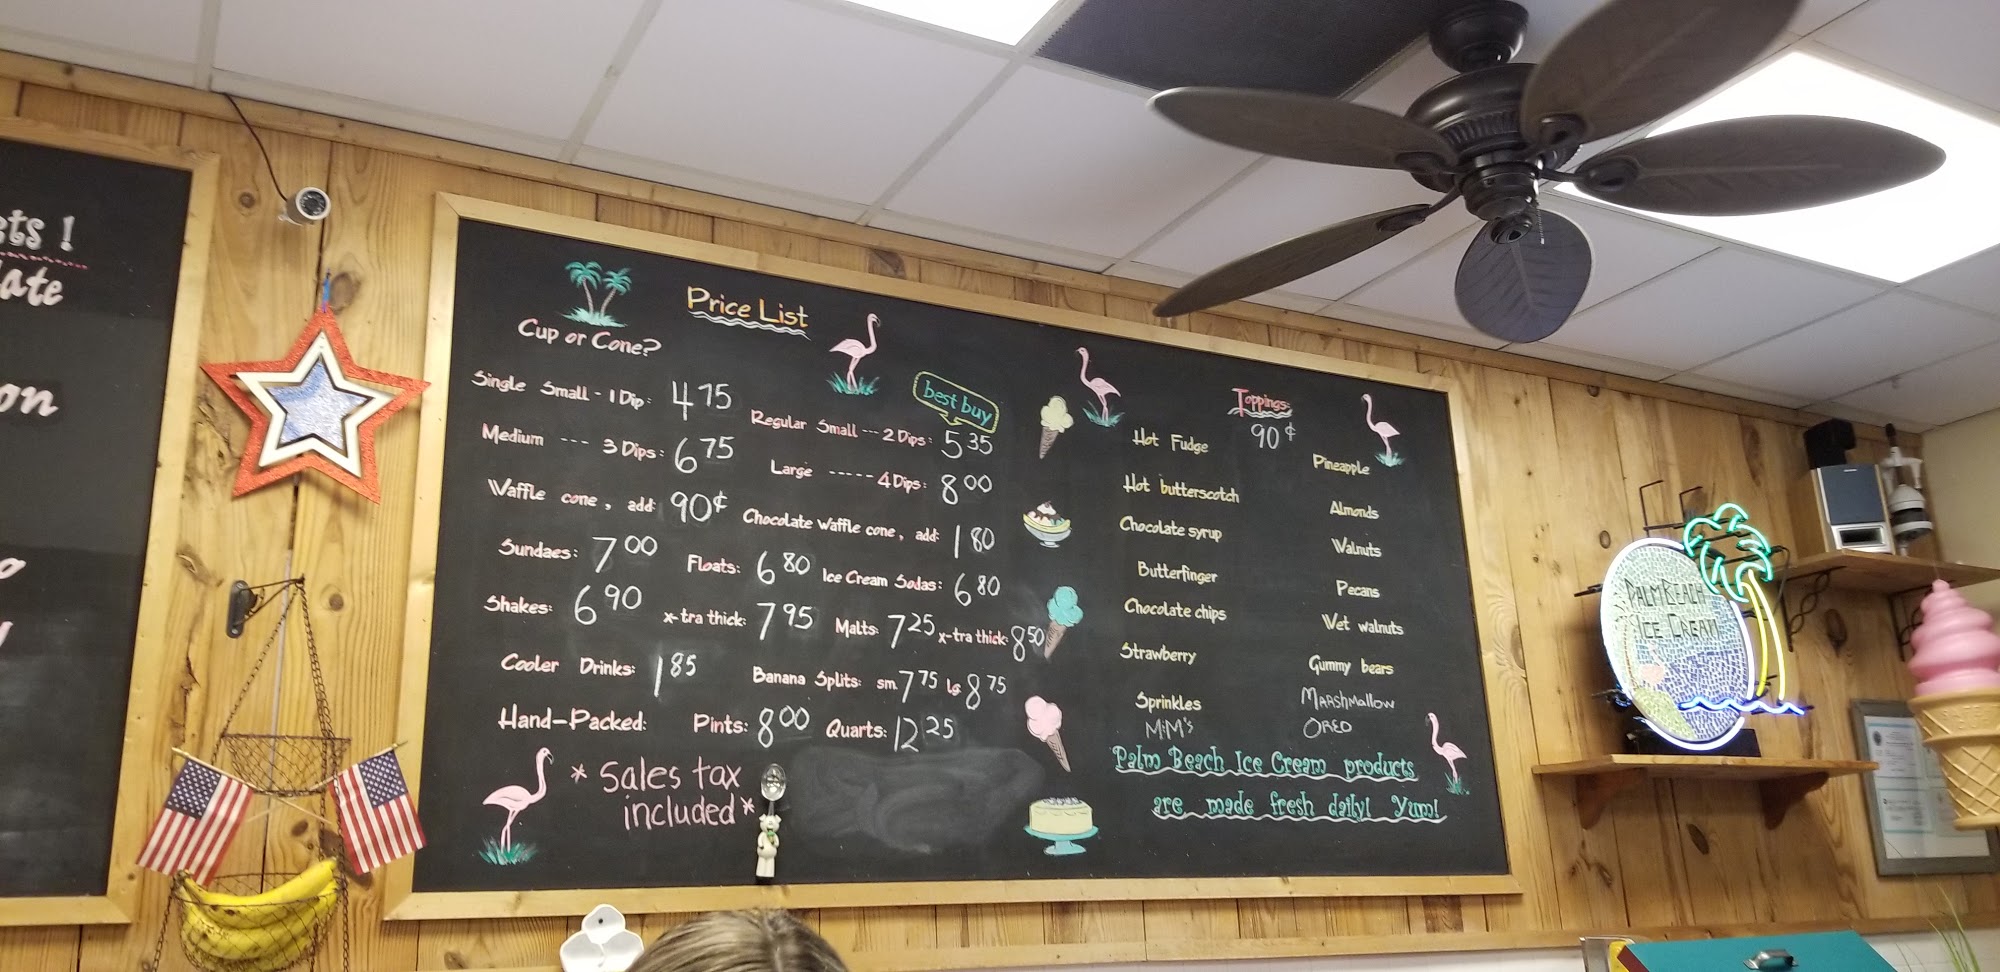 Price List
Cup or Cone?
best buy
Single Small - 1 Dip: 4 75
Regular Small --- 2 Dips: 5 35
Medium --- 3 Dips: 6 75
Large ----- 4 Dips: 8 00
Waffle cone, add: 90¢
Chocolate Waffle cone, add: 1 80
Sundaes: 7 00
Floats: 6 80
Ice Cream Sodas: 6 80
Shakes: 6 90
x-tra thick: 7 95
Malts: 7 25
x-tra thick: 8 50
Cooler Drinks: 1 85
Banana Splits: sm. 7 75 lg. 8 75
Hand-Packed: Pints: 8 00 Quarts: 12 25
* Sales tax
included *
Toppings:
90¢
Hot Fudge
Hot butterscotch
Chocolate syrup
Butterfinger
Chocolate chips
Strawberry
Sprinkles
M&M's
Pineapple
Almonds
Walnuts
Pecans
Wet walnuts
Gummy bears
Marshmallow
OREO
Palm Beach Ice Cream products
are made fresh daily! Yum!
PALM BEACH
ICE CREAM